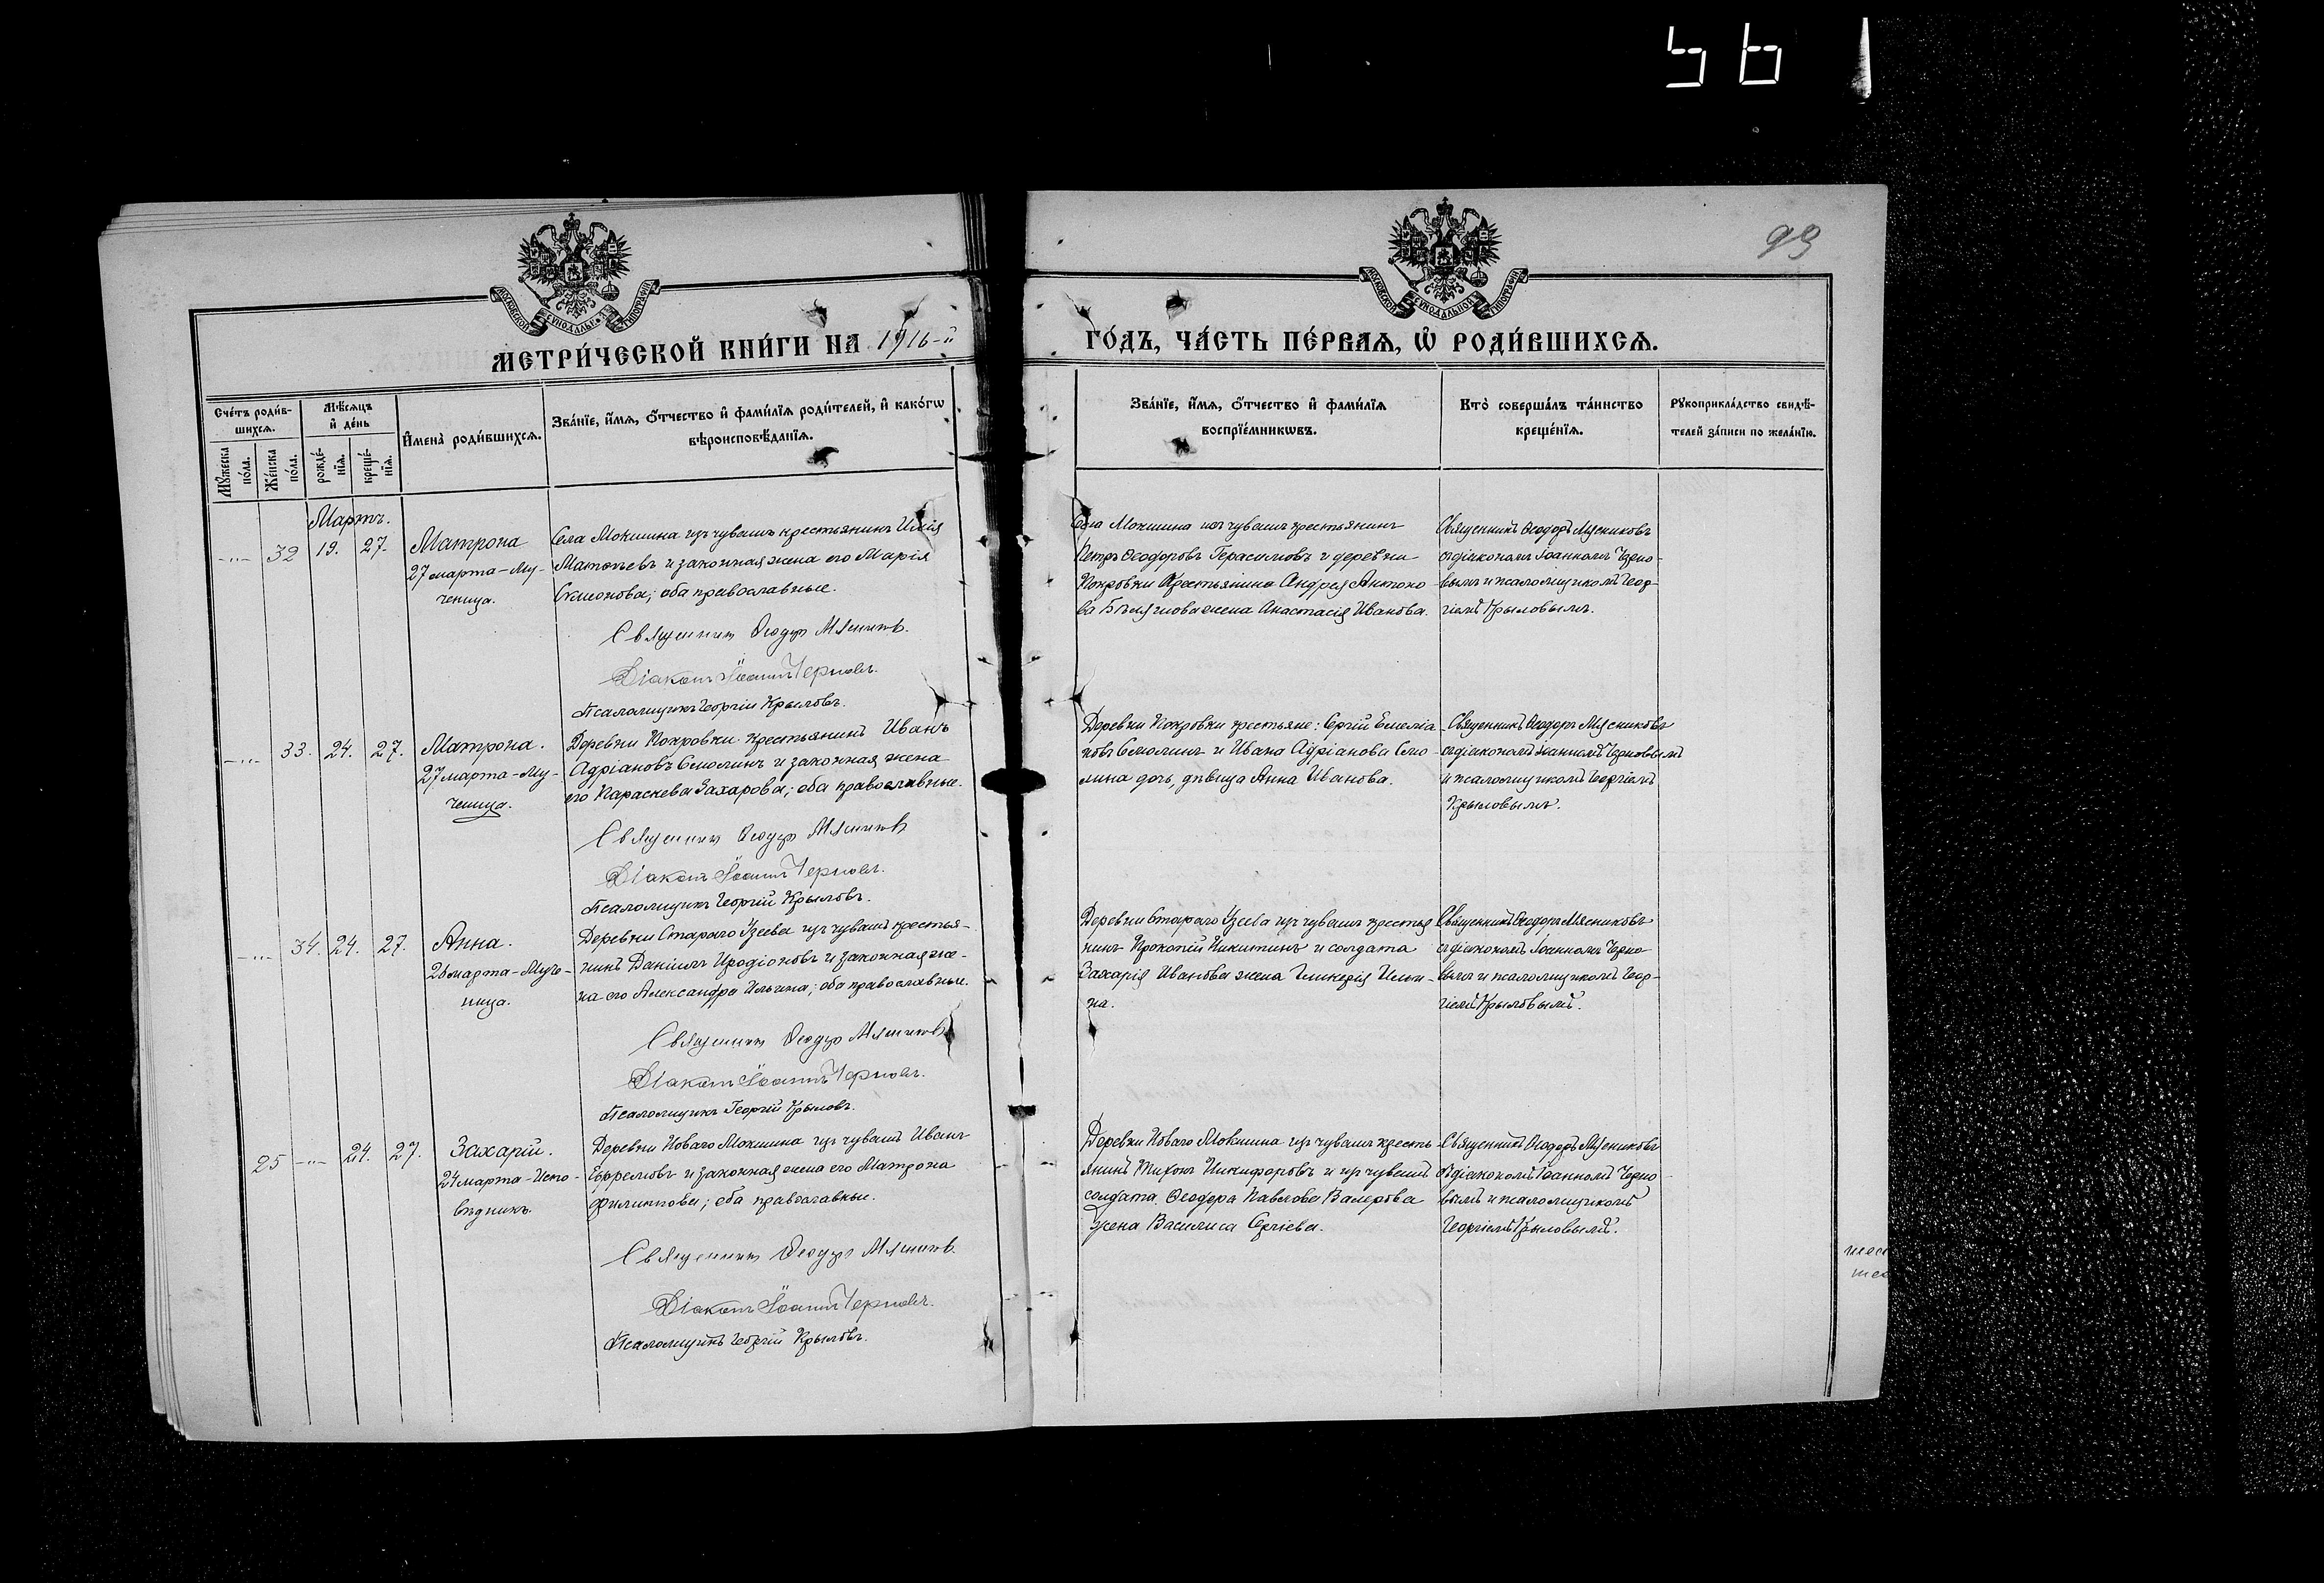 56
99
МОСКОВСКОЙ СѴНОДАЛЬНОЙ ТИПОГРАФІИ
МОСКОВСКОЙ СѴНОДАЛЬНОЙ ТИПОГРАФІИ
МЕТРИ́ЧЕСКОЙ КНИ́ГИ НА 1916-й
ГО́ДЪ, ЧА́СТЬ ПЕ́РВАѦ, Ѡ҆ РОДИ́ВШИХСѦ.
Сче́тъ роди́в-
шихсѧ.
Мꙋжеска по́ла.
Же́нска по́ла.
Мѣ́сѧцъ
и҆ де́нь
рожде́-
нїѧ.
креще́-
нїѧ.
И҆мена̀ роди́вшихсѧ.
Зва́нїе, и҆́мѧ, ѻ҆́тчество и҆ фами́лїѧ роди́телей, и҆ како́гѡ
вѣроисповѣ́данїѧ.
Зва́нїе, и҆́мѧ, ѻ҆́тчество и҆ фами́лїѧ
воспрїе́мникѡвъ.
Кто̀ соверша́лъ та́инство
креще́нїѧ.
Рꙋкоприкла́дство свидѣ́-
телей за́писи по жела́нїю.
Мартъ.
-„- 32 19. 27.
Матрона
27 марта - Му-
ченица.
Села Мокшина изъ чувашъ крестьянинъ Илія
Матвѣевъ и законная жена его Марія
Симонова; оба православные.
Священник Ѳеодор Мясников.
Діаконъ Іоаннъ Черновъ.
Псаломщикъ Георгій Крыловъ.
Села Мокшина изъ чувашъ крестьянинъ
Петръ Ѳеодоровъ Герасимовъ и деревни
Покровки крестьянина Андрея Антоно
ва жена Анастасія Иванова.
Священникъ Ѳеодоръ Мясниковъ
съ діакономъ Іоанномъ Черно-
вымъ и псаломщикомъ Геор-
гіемъ Крыловымъ.
-„- 33. 24. 27.
Матрона.
27 марта - Му-
ченица.
Деревни Покровки крестьянинъ Иванъ
Адріановъ Смолинъ и законная жена
его Параскева Захарова; оба православные.
Священник Ѳеодор Мясников
Діаконъ Іоаннъ Черновъ.
Псаломщикъ Георгій Крыловъ.
Деревни Покровки крестьяне: Сергій Емелiа
новъ Смолинъ и Ивана Адріанова Смо
лина дочь, дѣвица Анна Иванова.
Священникъ Ѳеодоръ Мясниковъ
съ діакономъ Іоанномъ Черновымъ
и псаломщикомъ Георгіемъ
Крыловымъ.
-„- 34. 24. 27.
Анна.
26 марта - Муче-
ница.
Деревни Стараго Узеева изъ чувашъ крестья-
нинъ Даніилъ Иродіоновъ и законная же-
на его Александра Ильина; оба православные.
Священник Ѳеодор Мясников
Діаконъ Іоаннъ Черновъ.
Псаломщикъ Георгій Крыловъ.
Деревни Стараго Узеева изъ чувашъ крестья
нинъ Прокопій Никитинъ и солдата
Захарія Иванова жена Гликерія Ильи-
на.
Священникъ Ѳеодоръ Мясниковъ
съ діакономъ Іоанномъ Черно-
вымъ и псаломщикомъ Геор-
гіемъ Крыловымъ.
25 -„- 24. 27.
Захарій.
24 марта - Испо-
вѣдникъ.
Деревни Новаго Мокшина изъ чувашъ Иванъ
Ефремовъ и законная жена его Матрона
Филиппова; оба православные.
Священник Ѳеодор Мясников.
Діаконъ Іоаннъ Черновъ.
Псаломщикъ Георгій Крыловъ.
Деревни Новаго Мокшина изъ чувашъ кресть
янинъ Тихонъ Никифоровъ и изъ чувашъ
солдата Ѳеодора Павлова Валерова
жена Василиса Сергіева.
Священникъ Ѳеодоръ Мясниковъ
съ діакономъ Іоанномъ Черно-
вымъ и псаломщикомъ
Георгіемъ Крыловымъ.